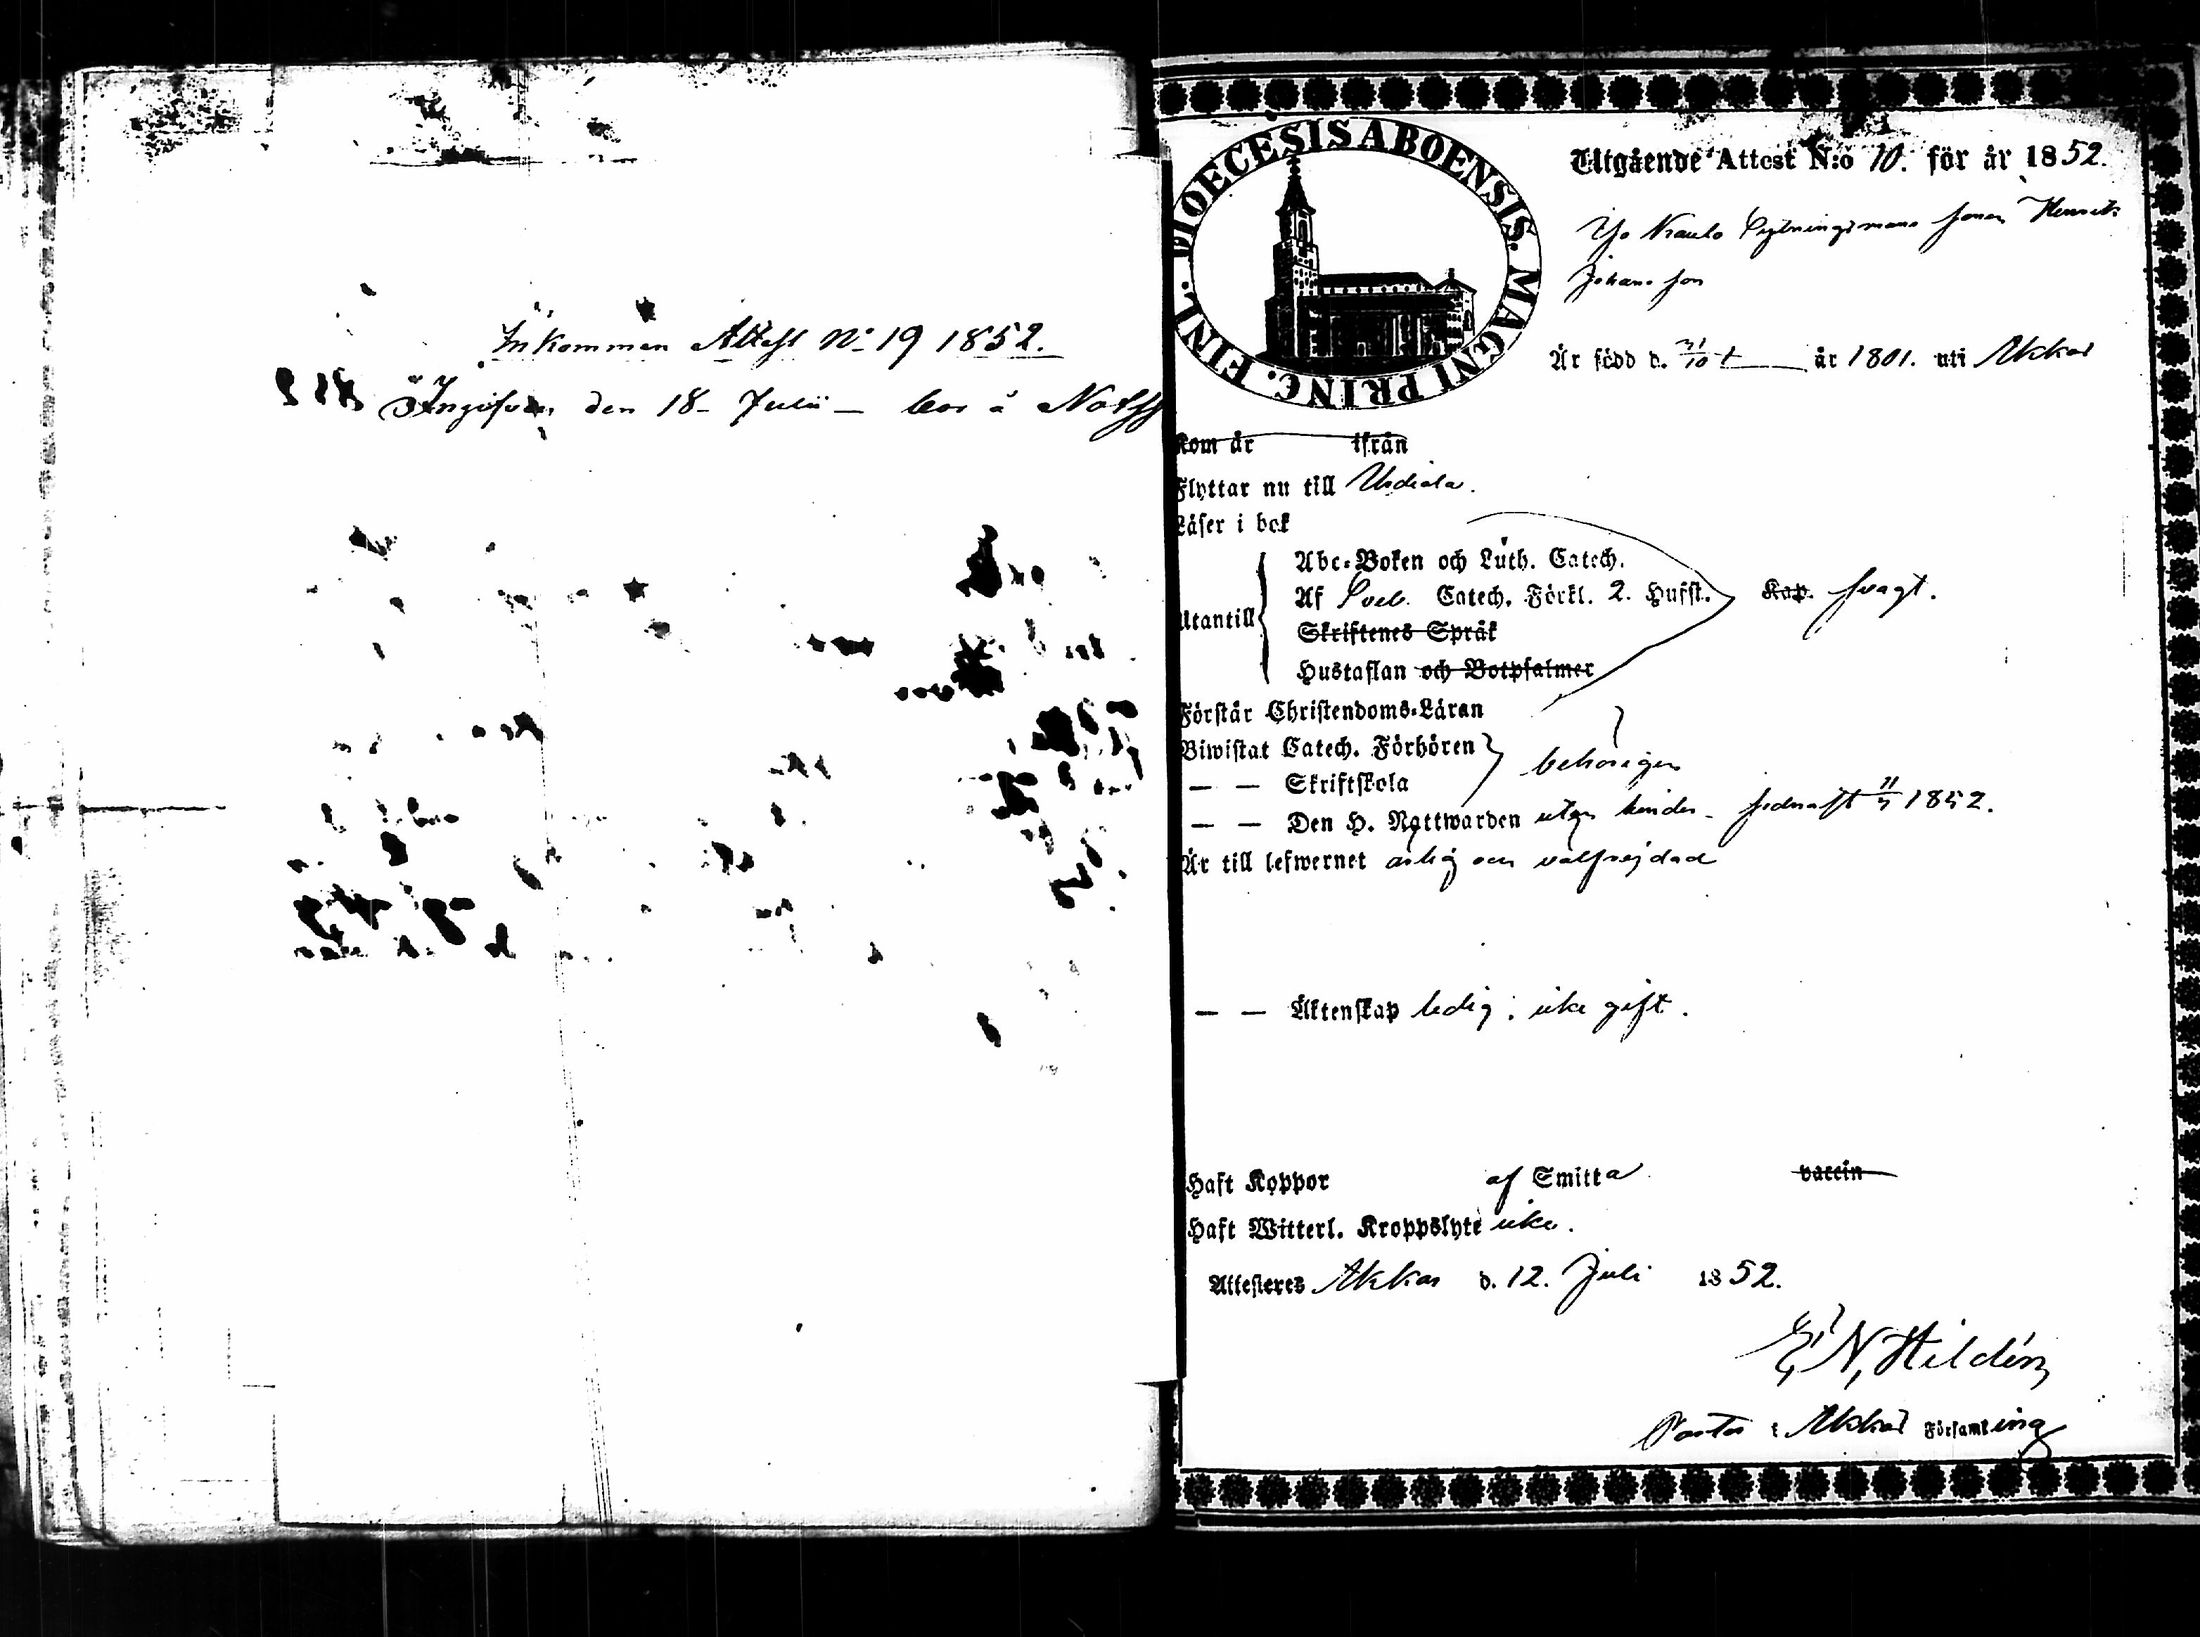 Inkommen Attest No 19 1852.
den 18 Julii — bor å
DIOECESIS ABOENSIS. MAGNI PRINC. FINL.
Utgående Attest N:o 10. för år 1852.
Henrik
Johansson
Är född d. 31/10 år 1801. uti Akkas
Kom år ifrån
Flyttar nu till Urdiala.
Läser i bok
Abc-Boken och Luth. Catech.
Utantill Af Sveb. Catech. Förkl. 2. Hufst. Kap. svagt.
Skriftenes Språk
Hustaflan och Botpsalmer
Förstår Christendoms-Läran
Biwistat Catech. Förhören behörigen
— — Skriftskola
— — Den H. Nattwarden utan hinder sednast 11/7 1852.
Är till lefwernet ärlig och välfrejdad
— — Äktenskap ledig; icke gift.
Haft Koppor af Smitta vaccin
Haft Witterl. Kroppslyte icke.
Attesteres Akkas d. 12. Juli 1852.
E. N. Hildén
Pastor i Akkas Församling